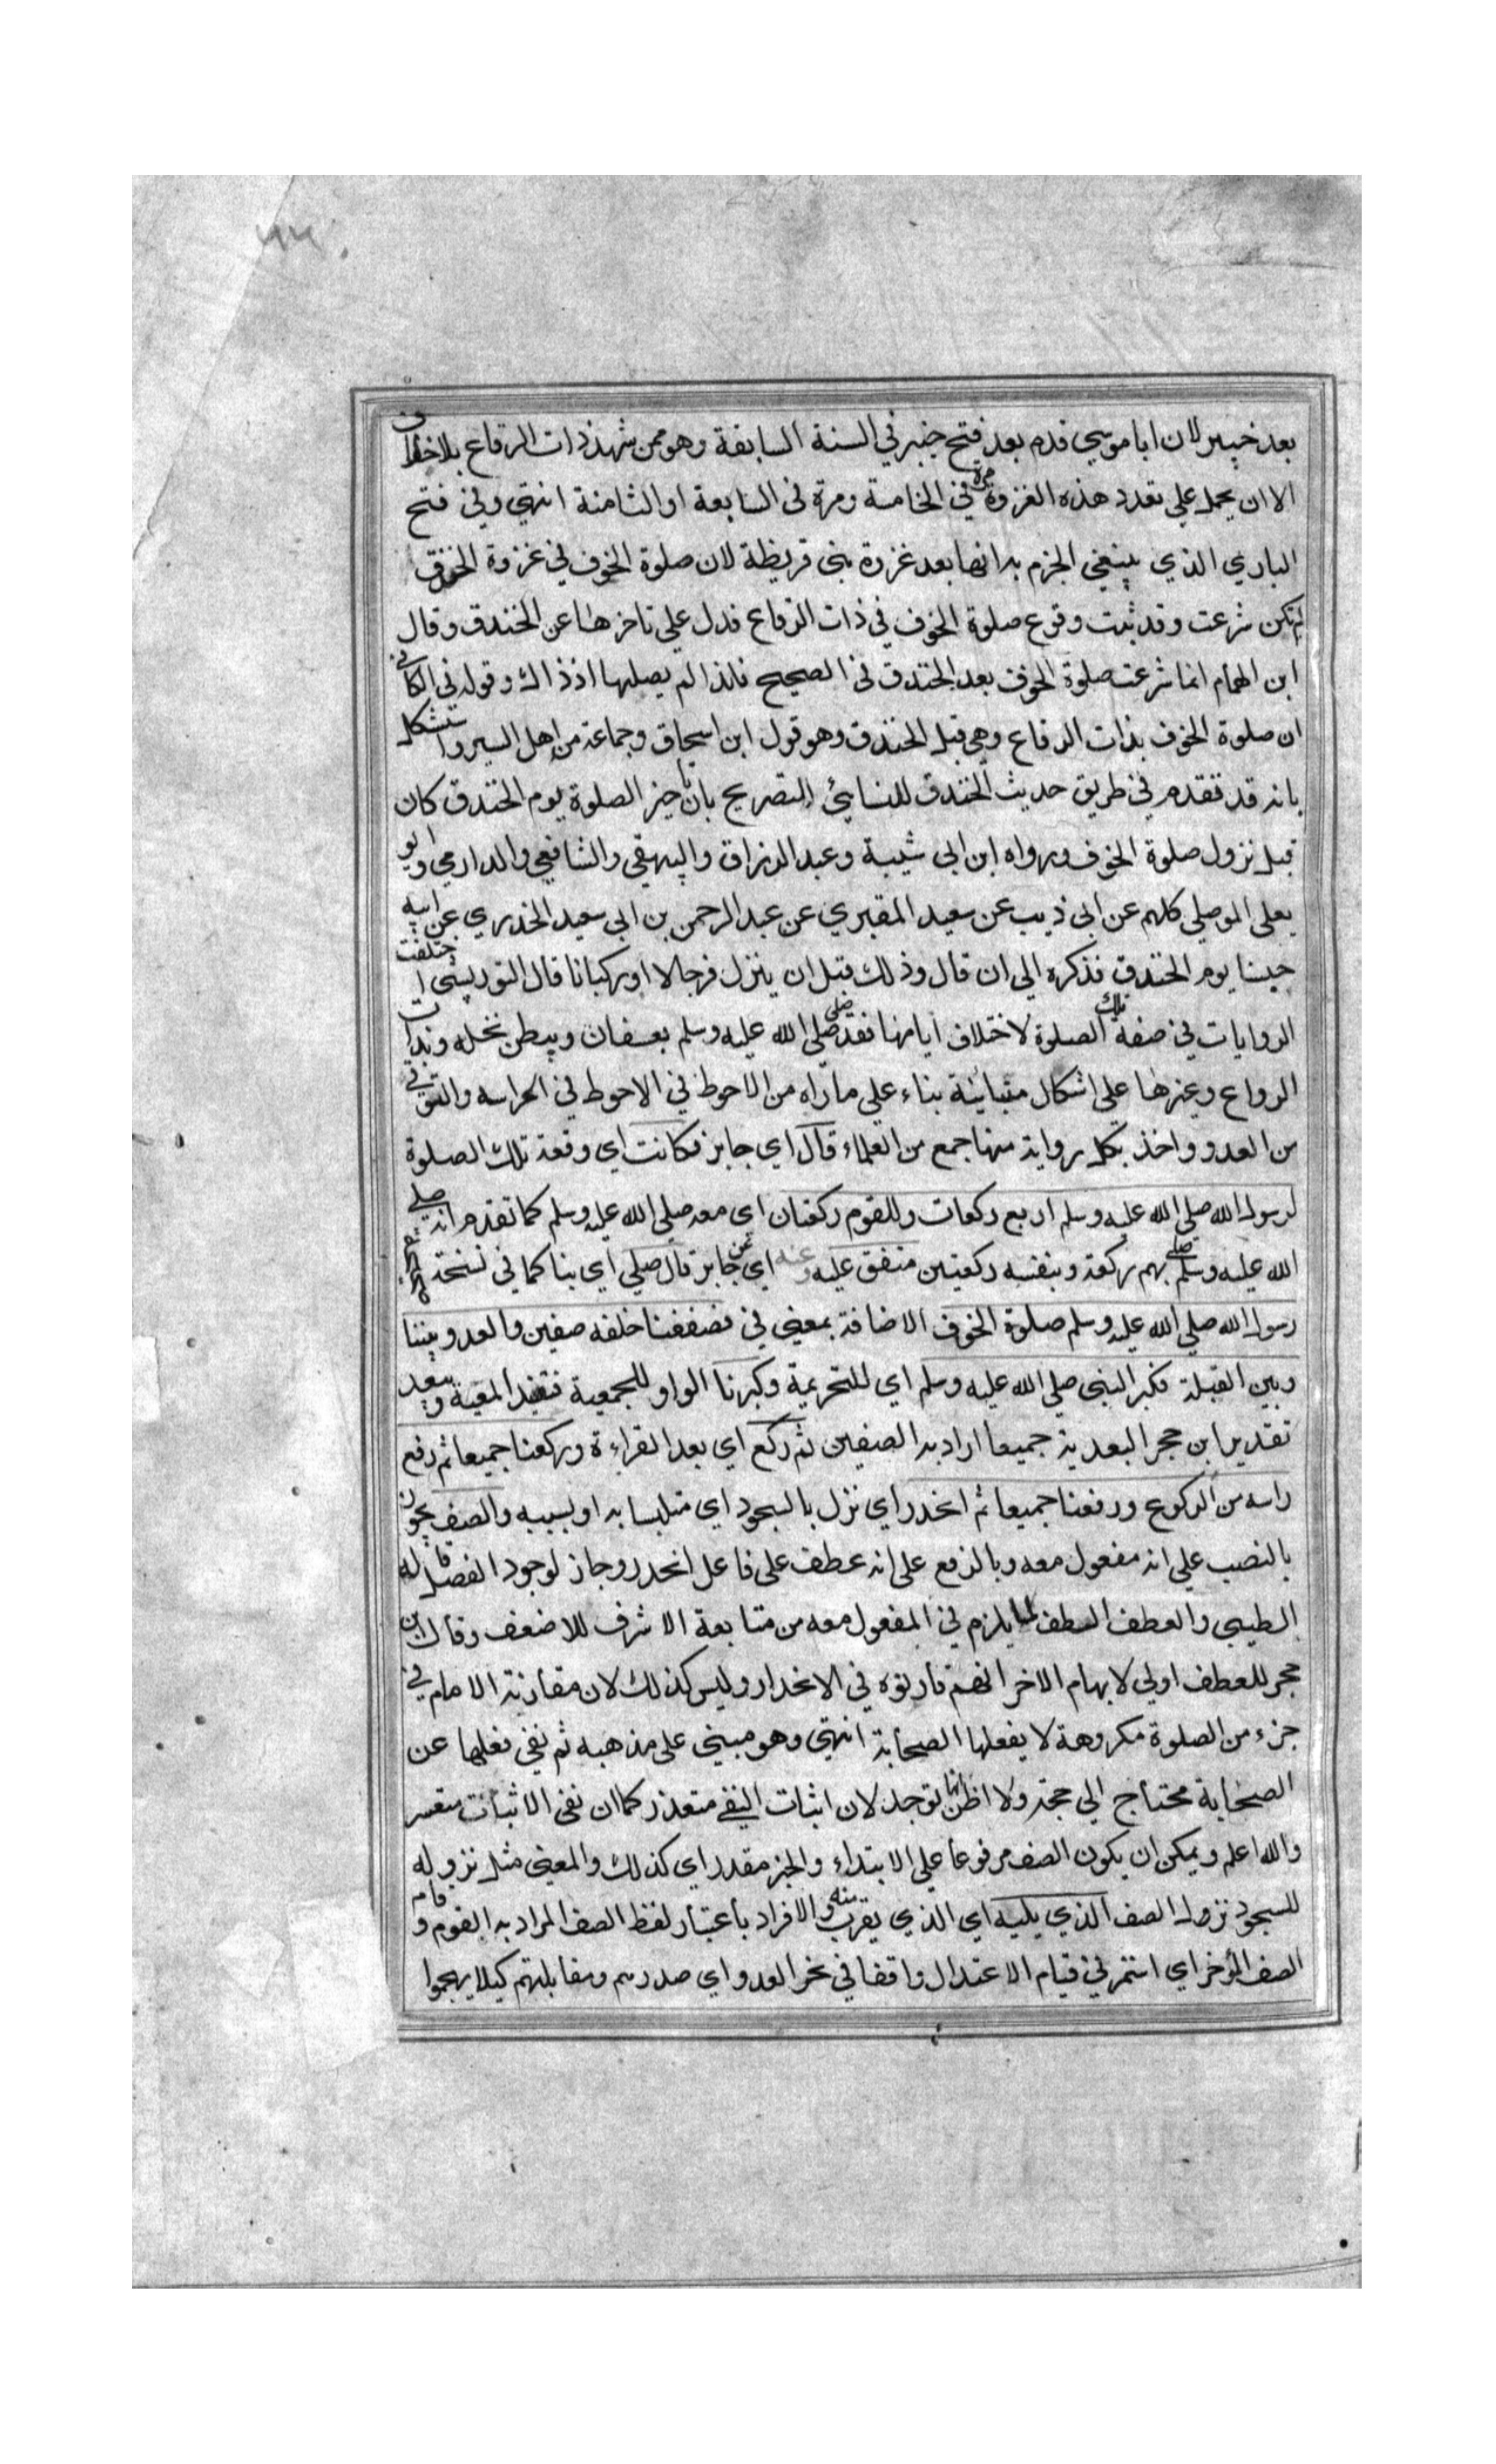 بعد خيبر لان ابا موسي قدم بعد فتح خيبر في السنة السابعة وهو ممن شهد ذات الرقاع بلا خلاف
الا ان يحمل علي تعدد هذه الغزوة مرة في الخامسة ومرة في السابعة او الثامنة انتهي وفي فتح
الباري الذي ينبغي الجزم به انها بعد غزوة بني قريظة لان صلوة الخوف في غزوة الخندق
لم تكن شرعت وقد ثبت وقوع صلوة الخوف في ذات الرقاع فدل علي تاخرها عن الخندق وقال
ابن الهمام انما شرعت صلوة الخوف بعد الخندق في الصحيح فلذا لم يصلها اذ ذاك وقوله في الكافي
ان صلوة الخوف بذات الرقاع وهي قبل الخندق وهو قول ابن اسحاق وجماعة من اهل السير واستشكل
بانه قد تقدم في طريق حديث الخندق للنسائي التصريح بان تاخير الصلوة يوم الخندق كان
قبل نزول صلوة الخوف ورواه ابن ابي شيبة وعبد الرزاق والبيهقي والشافعي والدارمي وابو
يعلى الموصلي كلهم عن ابي ذيب عن سعيد المقبري عن عبد الرحمن بن ابي سعيد الخدري عن ابيه
حبسنا يوم الخندق فذكره الي ان قال وذلك قبل ان ينزل فرجالا او ركبانا قال التوربشتي اختلفت
الروايات في صفة تلك الصلوة لاختلاف ايامها فقد صلى صلي الله عليه وسلم بعسفان وببطن نخله وبذات
الرواع وغيرها علي اشكال متباينة بناء علي ما راه من الاحوط في الاحوط في الحراسه والتوقي
من العدو واخذ بكل رواية منها جمع من العلماء قال اي جابر فكانت اي وقعة تلك الصلوة
لرسول الله صلي الله عليه وسلم اربع ركعات وللقوم ركعتان اي معه صلي الله عليه وسلم كما تقدم انه صلي
الله عليه وسلم صلي بهم ركعة وبنفسه ركعتين متفق عليه وعنه اي عن جابر قال صلي اي بنا كما في نسخة
رسول الله صلي الله عليه وسلم صلوة الخوف الاضافة بمعني في فصففنا خلفه صفين والعدو بيننا
وبين القبلة فكبر النبي صلي الله عليه وسلم اي للتحريمة وكبرنا الواو للجمعية فتفيد المعية ويبعد
تقدير ابن حجر البعدية جميعا اراد به الصفين ثم ركع اي بعد القراءة وركعنا جميعا ثم رفع
راسه من الركوع ورفعنا جميعا ثم انحدر اي نزل بالسجود اي متلبسا به او بسببه والصف يجوز
بالنصب علي انه مفعول معه وبالرفع علي انه عطف علي فاعل انحدر وجاز لوجود الفصل قاله
الطيبي والعطف الطف لما يلزم في المفعول معه من متابعة الاشرف للاضعف وقال ابن
حجر للعطف اولي لايهام الاخر انهم قارنوه في الانحدار وليس كذلك لان مقارنة الامام في
جزء من الصلوة مكروهة لا يفعلها الصحابة انتهي وهو مبني علي مذهبه ثم نفي فعلها عن
الصحابة محتاج الي حجة ولا اظن انها توجد لان اثبات النفي متعذر كما ان نفي الاثبات متعسر
والله اعلم ويمكن ان يكون الصف مرفوعا علي الابتداء والخبر مقدر اي كذلك والمعني مثل نزوله
للسجود نزول الصف الذي يليه اي الذي يقرب منه والافراد باعتبار لفظ الصف المراد به القوم وقام
الصف المؤخر اي استمر في قيام الاعتدال واقفا في نحر العدو اي صدرهم ومقابلتهم كيلا يهجموا